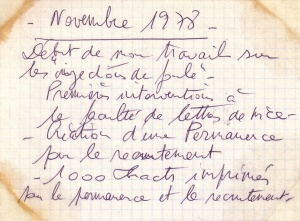 - Novembre 1978 -
Début de mon travail sur
les de
- Premières interventions à
la faculté de lettres de Nice -
- Création d'une Permanence
pour le recrutement
- 1000 tracts imprimés
pour la permanence et le recrutement -